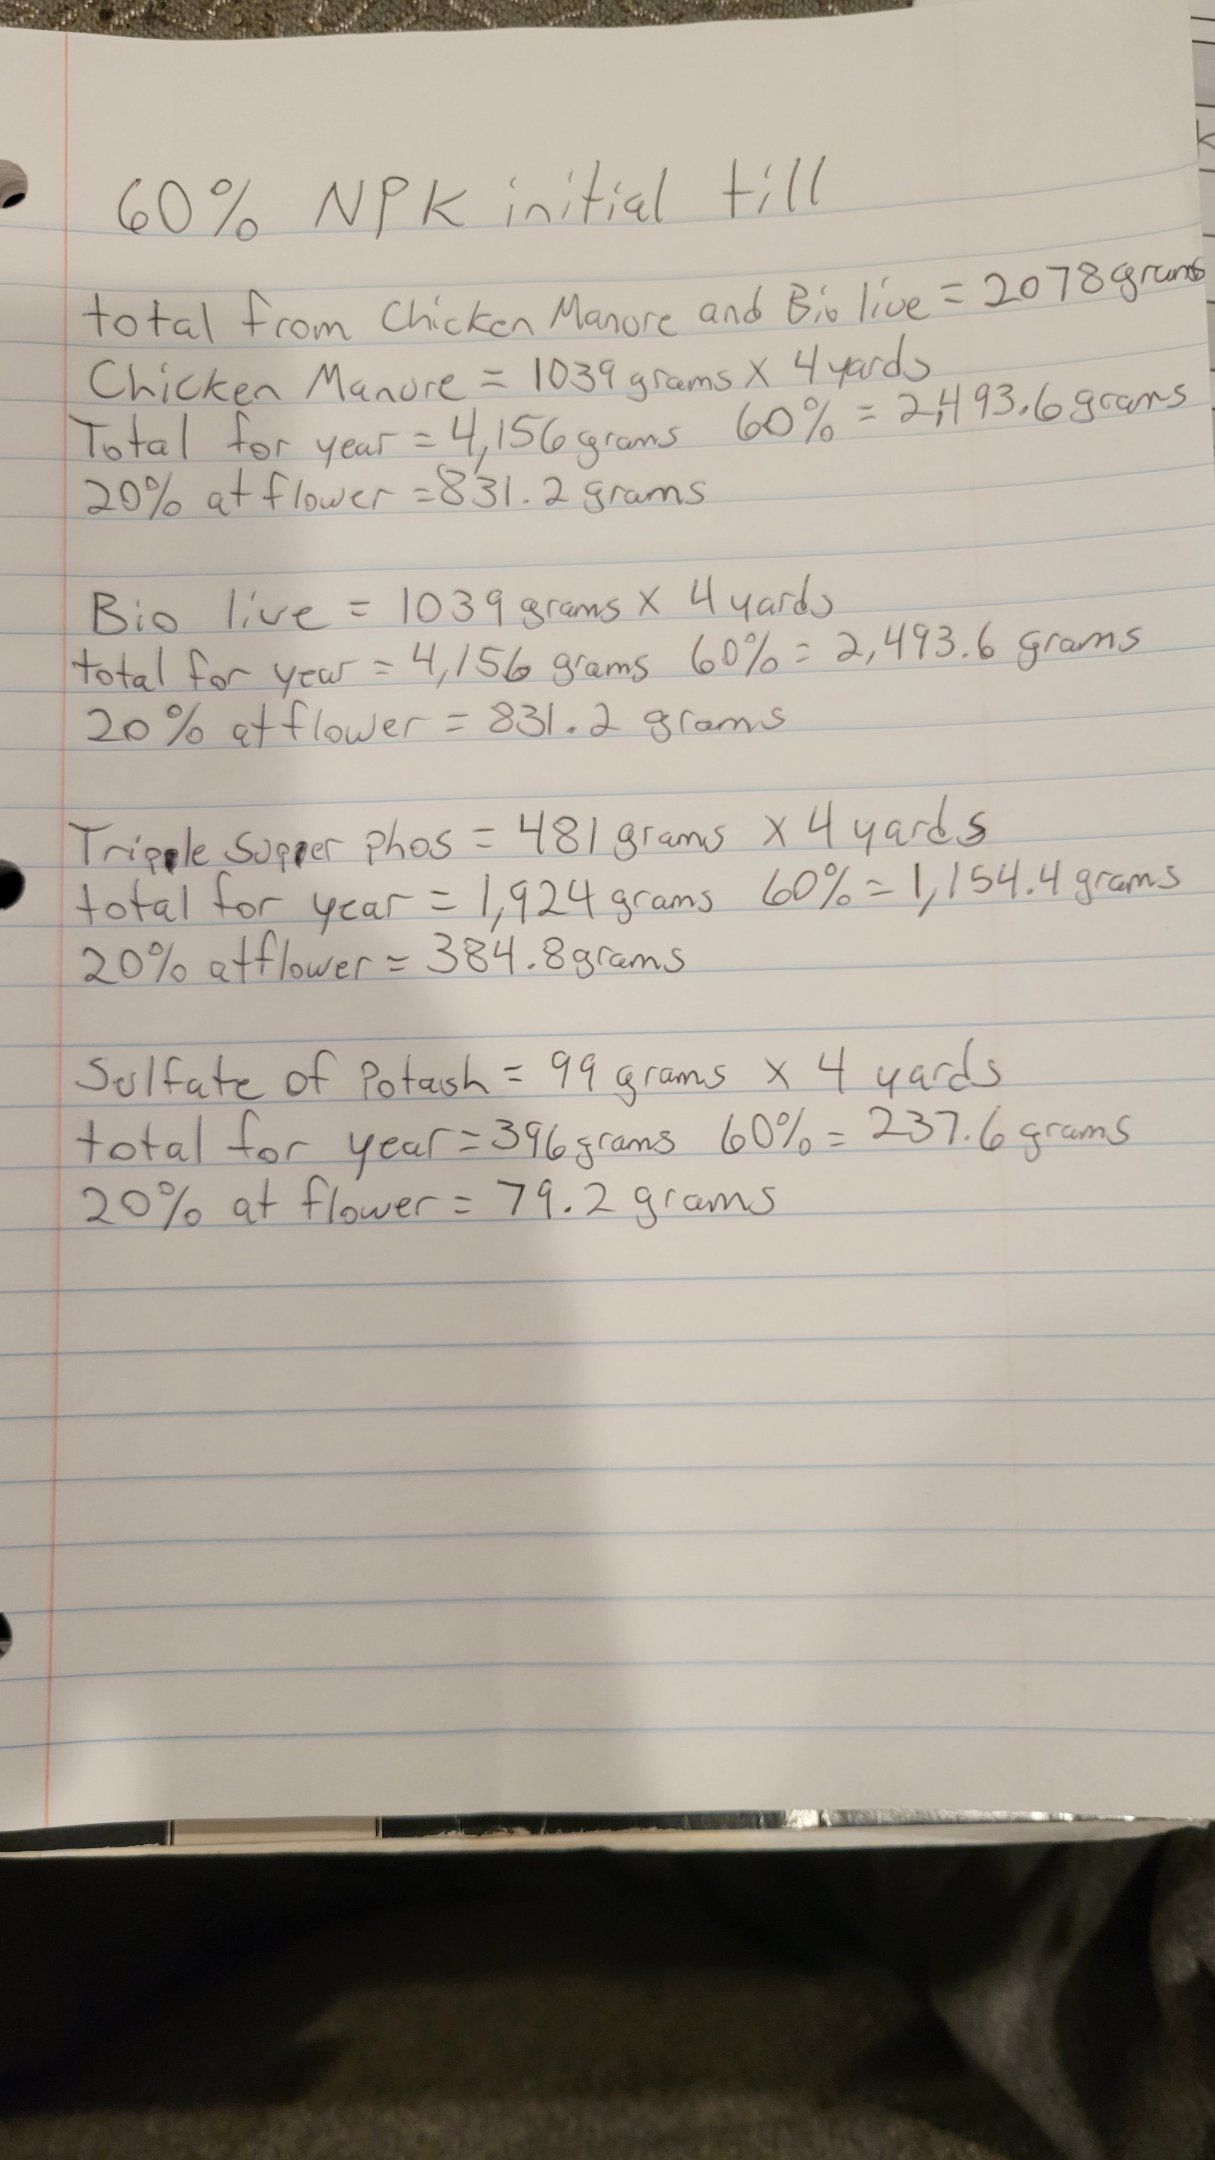 60% NPK initial till
total from Chicken Manure and Bio live = 2078 grams
Chicken Manure = 1039 grams x 4 yards
Total for year = 4,156 grams 60% = 2,493.6 grams
20% at flower = 831.2 grams
Bio live = 1039 grams x 4 yards
total for year = 4,156 grams 60% = 2,493.6 grams
20% at flower = 831.2 grams
Tripple Supper Phos = 481 grams x 4 yards
total for year = 1,924 grams 60% = 1,154.4 grams
20% at flower = 384.8 grams
Sulfate of Potash = 99 grams x 4 yards
total for year = 396 grams 60% = 237.6 grams
20% at flower = 79.2 grams